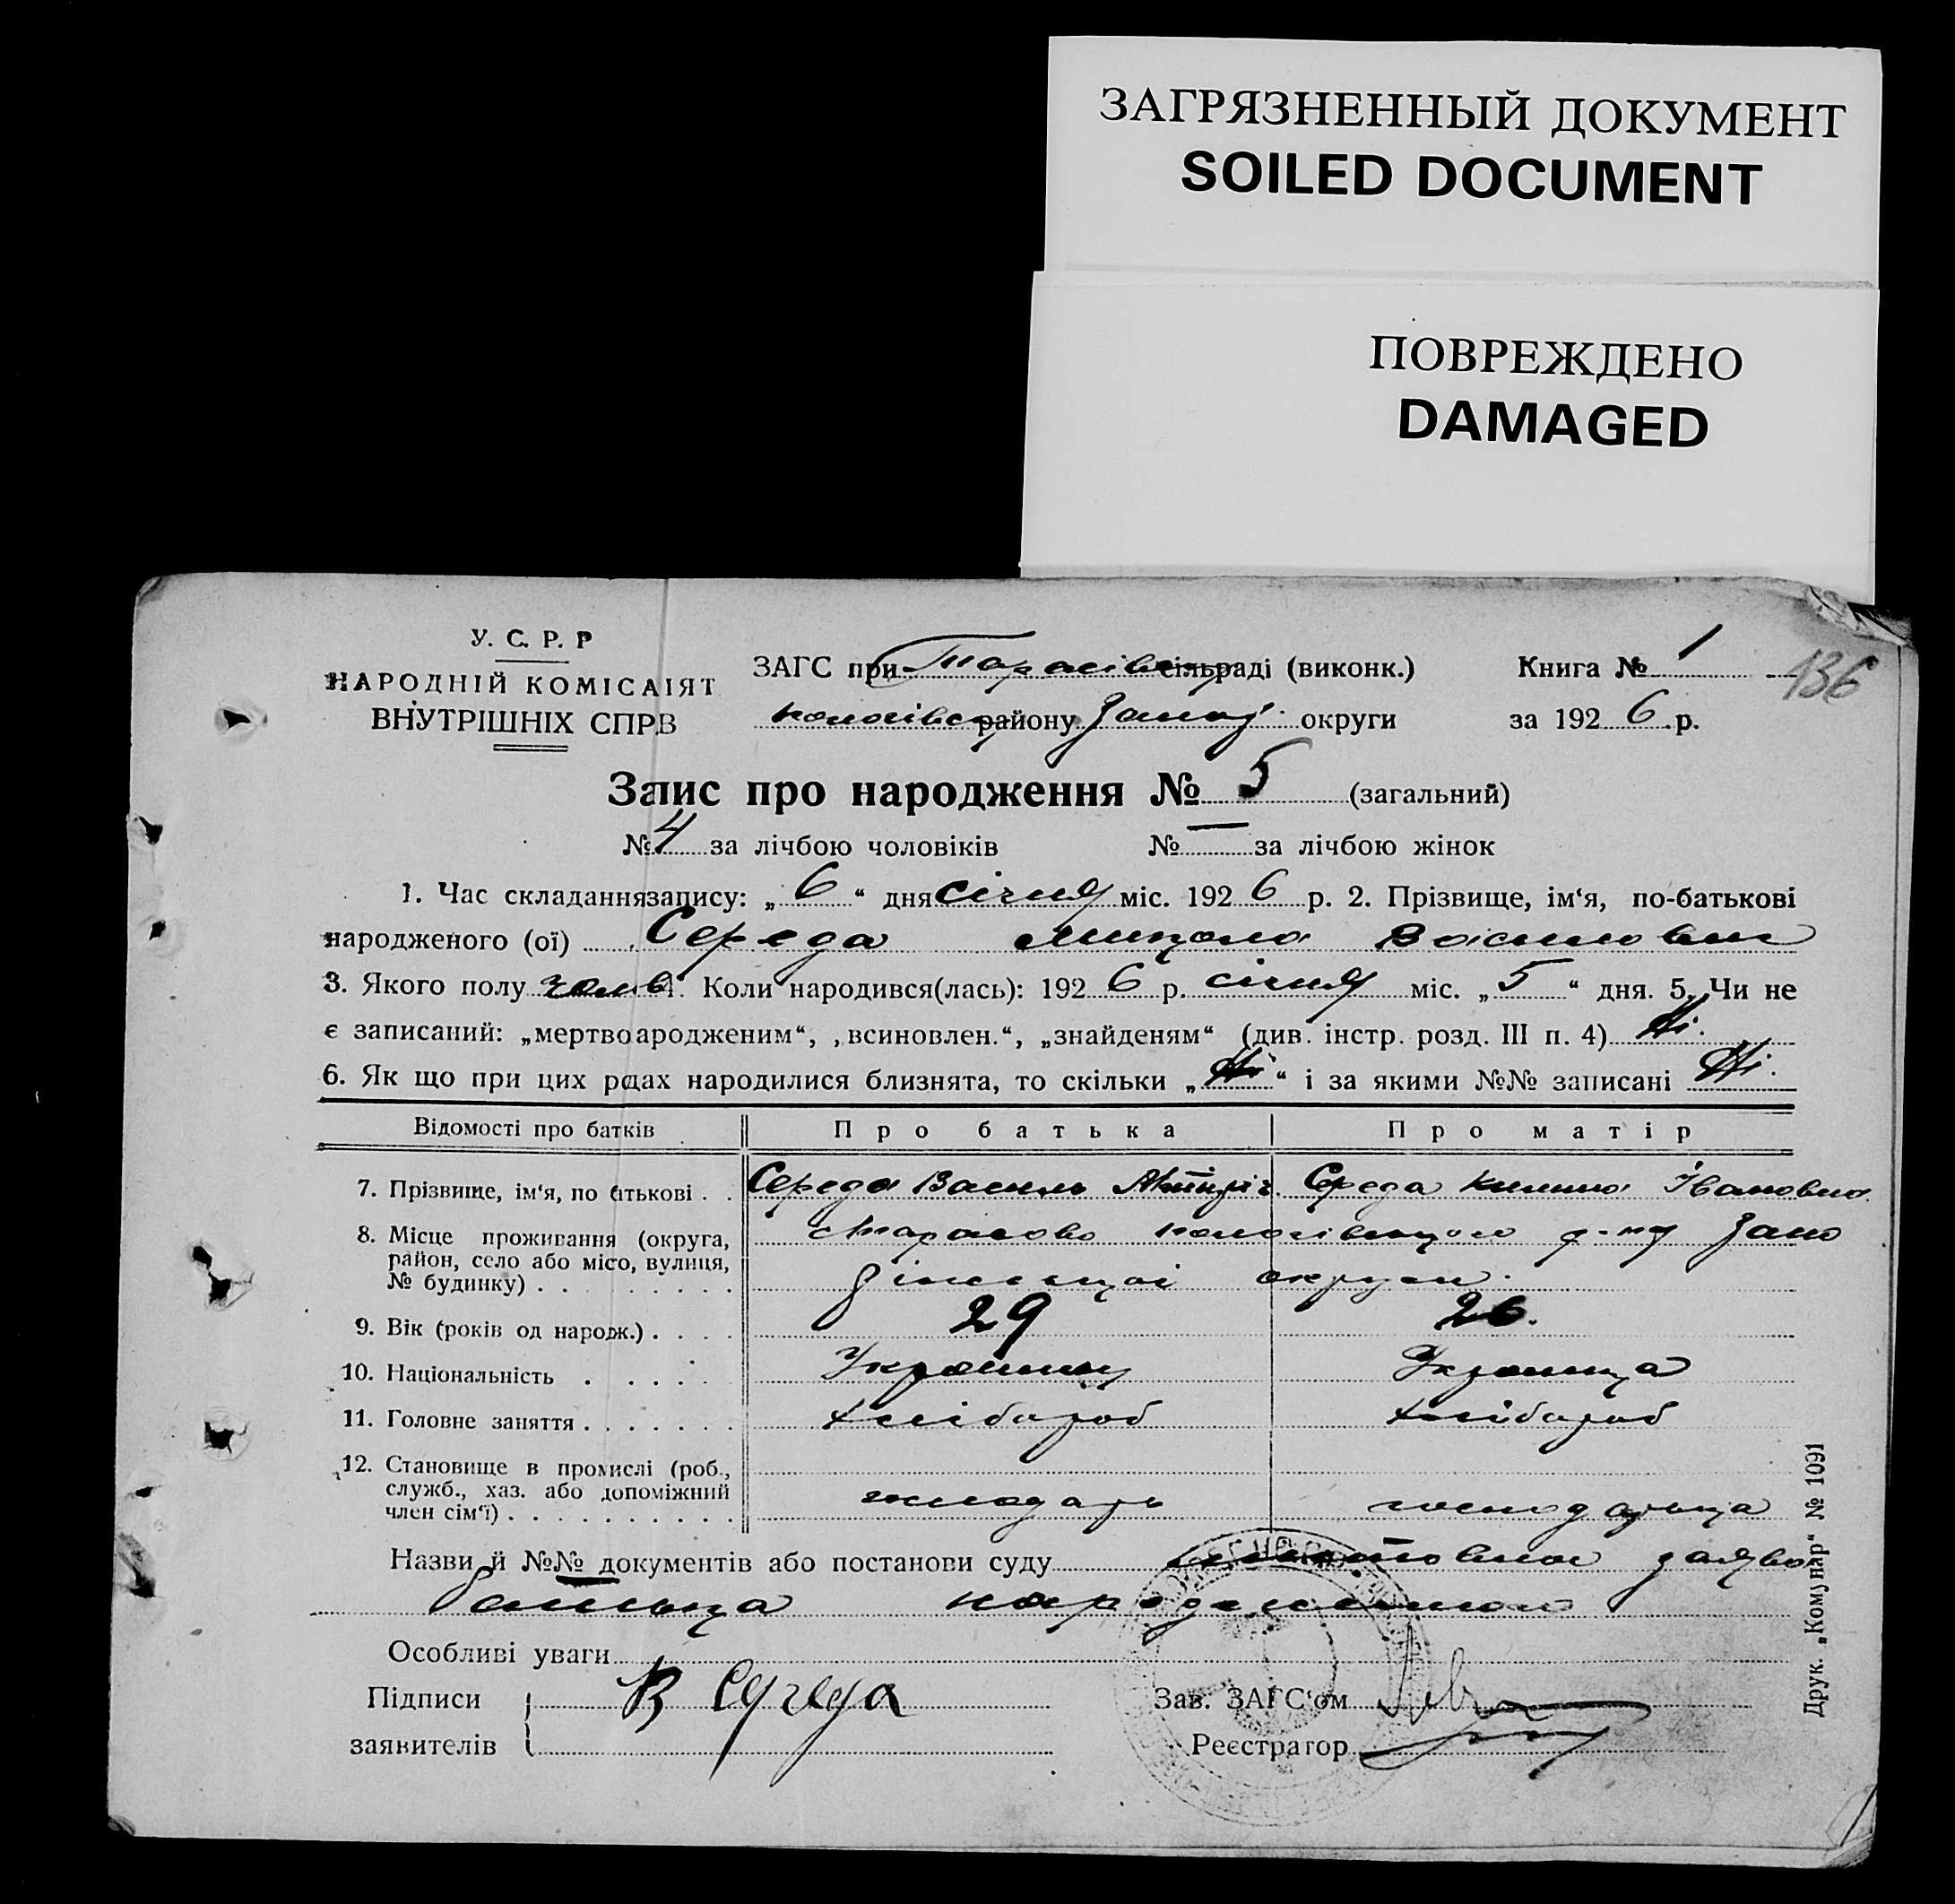 ЗАГРЯЗНЕННЫЙ ДОКУМЕНТ
SOILED DOCUMENT
ПОВРЕЖДЕНО
DAMAGED
У. С. Р. Р
НАРОДНІЙ КОМІСАІЯТ
ВНУТРІШНІХ СПРВ
ЗАГС при Тарасівск сільраді (виконк.) Книга № 1
136
пологівск району Запоj округи за 1926 р.
Запис про народження № 5 (загальний)
№ 4 за лічбою чоловіків № — за лічбою жінок
1. Час складання запису: „6“ дня січня міс. 1926 р. 2. Прізвище, ім‘я, по-батькові
народженого (ої) Середа Микола Васильович
3. Якого полу чолов 4. Коли народився(лась): 1926 р. січня міс. „5“ дня. 5. Чи не
є записаний: „мертвоародженим“, „всиновлен.“, „знайденям“ (див. інстр. розд. III п. 4) Ні.
6. Як що при цих рдах народилися близнята, то скільки „Ні“ і за якими №№ записані Ні.
Відомості про батків Про батька Про матір
7. Прізвище, ім‘я, по атькові . . Середа Василь Середа Килина Івановна
8. Місце проживання (округа, Тарасовка пологівського р-ну Запо
район, село або місто, вулиця,
№ будинку) . . . . . . . . . ріжської округи.
9. Вік (років од народж.) . . . . 29 26.
10. Національність . . . . . Українец Українца
11. Головне заняття . . . . . . . хлібороб хлібороб
12. Становище в промислі (роб.,
служб., хаз. або допоміжний
член сім‘ї) . . . . . . . . . . господарь господарьца
Назви й №№ документів або постанови суду заява
батька
Особливі уваги
Підписи В Середа Зав. ЗАГС‘ом
заявителів Реєстратор
Друк. „Комунар“ № 1091